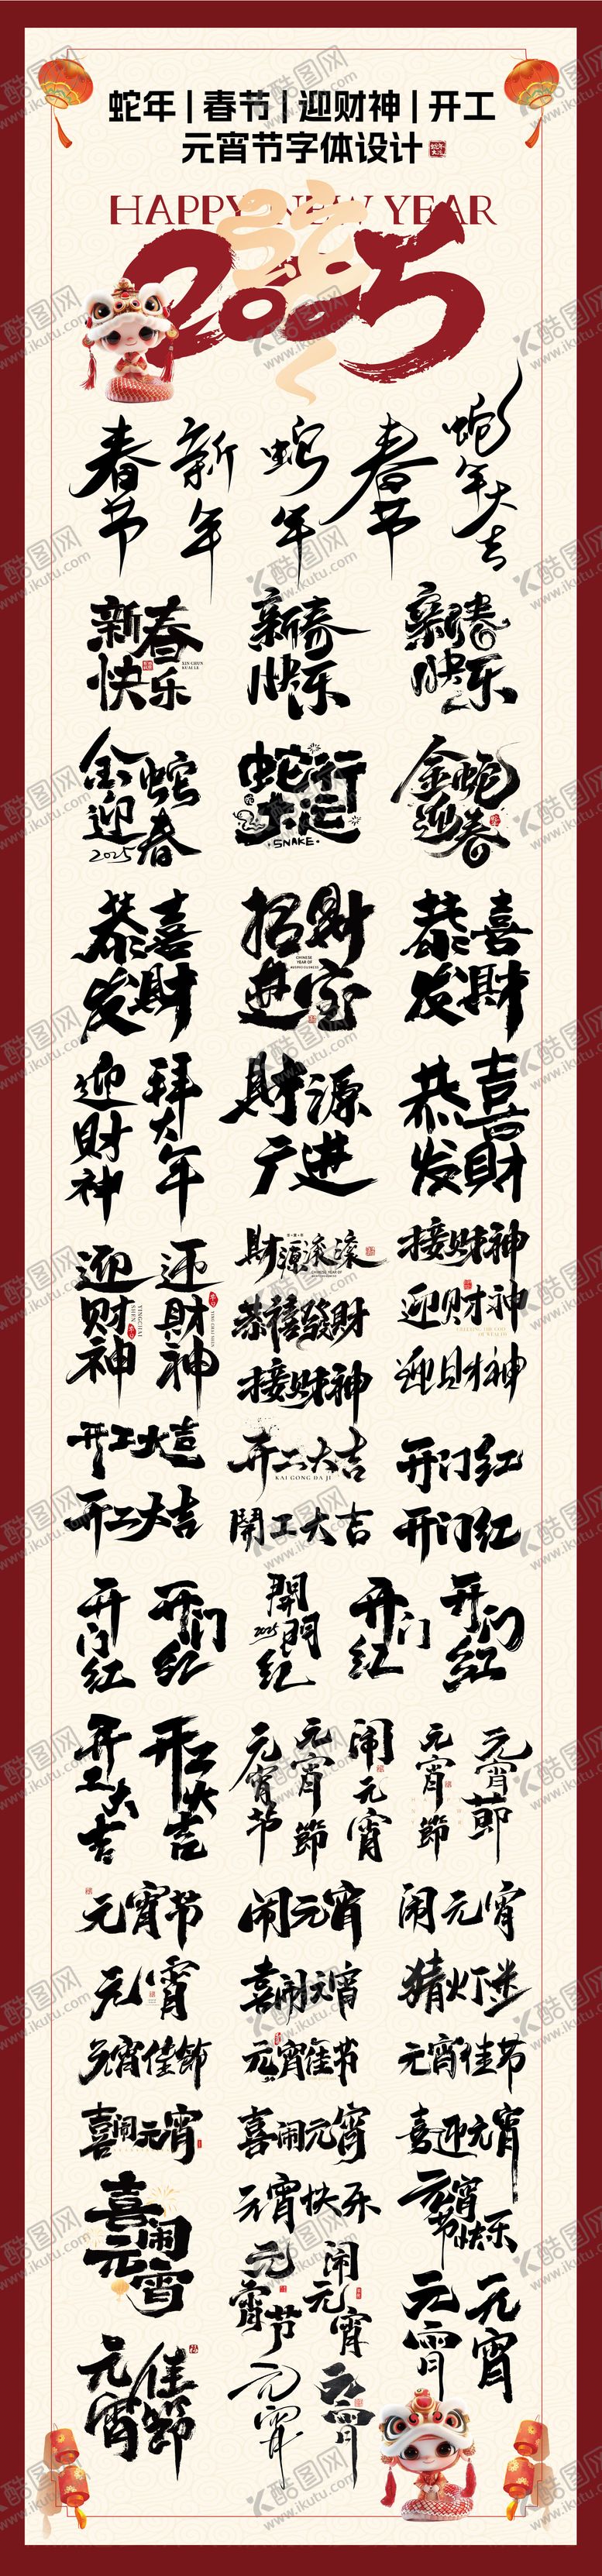 蛇年 | 春节 | 迎财神 | 开工
元宵节字体设计
HAPPY NEW YEAR
2025
春节
新年
蛇年
春节
蛇年大吉
新春快乐
XIN CHUN
KUAI LE
新春快乐
新春快乐
金蛇迎春
2025
蛇行大运
SNAKE
金蛇迎春
恭喜发財
招財进宝
CHINESE
YEAR OF
恭喜发財
迎財神
拜大年
財源广进
恭喜发財
迎财神
YINGCHAI
SHEN
迎財神
YING CHAI SHEN
財源滚滚
恭禧發財
接财神
接财神
迎财神
迎财神
开工大吉
开工大吉
开工大吉
KAI GONG DA JI
開工大吉
开门红
开门红
开门红
开门红
開門红
2025
开门红
开门红
开工大吉
开工大吉
元宵节
元宵節
闹元宵
元宵節
元宵節
元宵节
闹元宵
闹元宵
元宵
喜闹元宵
猜灯迷
元宵佳節
元宵佳节
元宵佳节
喜闹元宵
喜闹元宵
喜迎元宵
喜闹元宵
元宵快乐
元宵节快乐
元宵节
闹元宵
元宵
元宵
元宵佳節
元宵
元宵
酷图网
www.ikutu.com